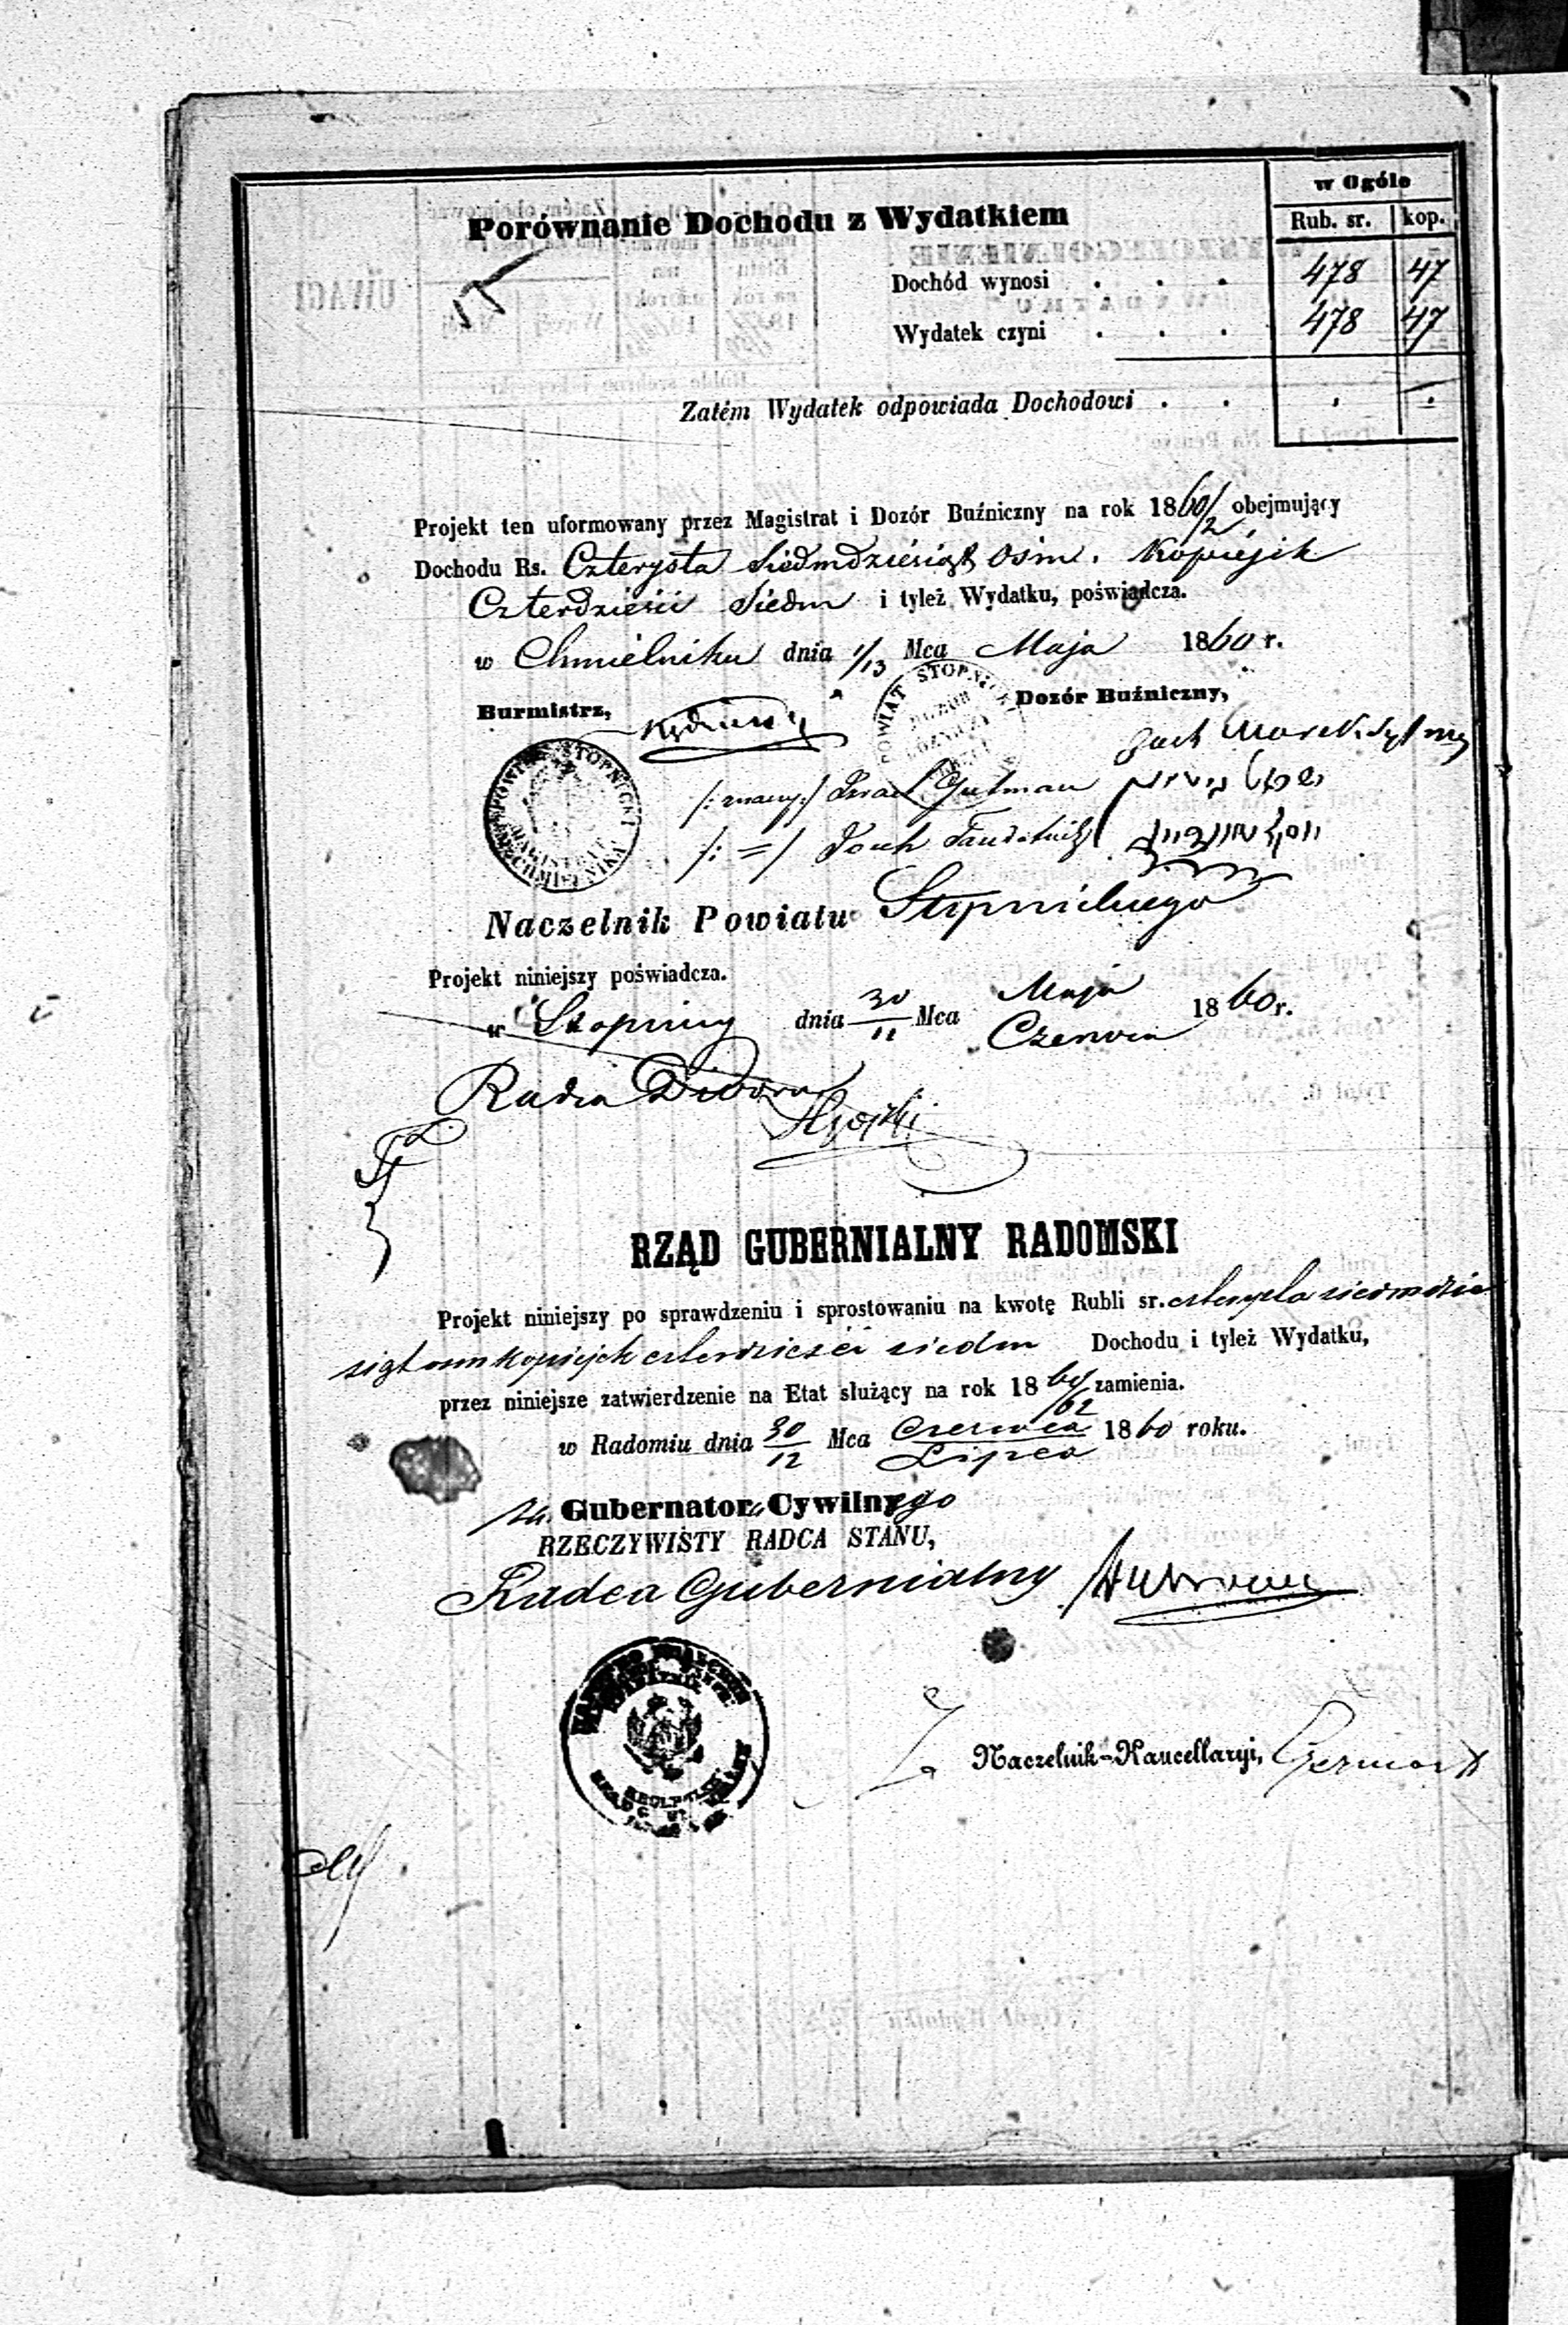 w Ogóle
Porównanie Dochodu z Wydatkiem
Rub. sr. kop.
Dochód wynosi . . . 478 47
Wydatek czyni . . . 478 47
Zatém Wydatek odpowiada Dochodowi . .
Projekt ten uformowany przez Magistrat i Dozór Buźniczny na rok 1860/2 obejmujący
Dochodu Rs. Czterysta Siedmdziesiąt Ośm. Kopiejek
Czterdzieści Siedm i tyleż Wydatku, poświadcza.
w Chmielniku dnia 1/13 Mca Maja 1860 r.
POWIAT STOPNICKI
Burmistrz, Dozór Buźniczny,
POWIAT STOPNICKI
MAGISTRAT
CHMIELNIKA
Israel Gutman
Naczelnik Powiatu Stopnickiego
Projekt niniejszy poświadcza.
w Stopnicy dnia 30/11 Mca Maja/Czerwca 1860 r.
Radca Dworu
RZĄD GUBERNIALNY RADOMSKI
Projekt niniejszy po sprawdzeniu i sprostowaniu na kwotę Rubli sr. czterysta siedmdzie
siąt ośm kopiejek czterdzieści siedm Dochodu i tyleż Wydatku,
przez niniejsze zatwierdzenie na Etat służący na rok 1860/62 zamienia.
w Radomiu dnia 30/12 Mca Czerwca/Lipca 1860 roku.
za Gubernatora Cywilnego
RZECZYWISTY RADCA STANU,
Radca Gubernialny
Za Naczelnik-Kancellaryi,